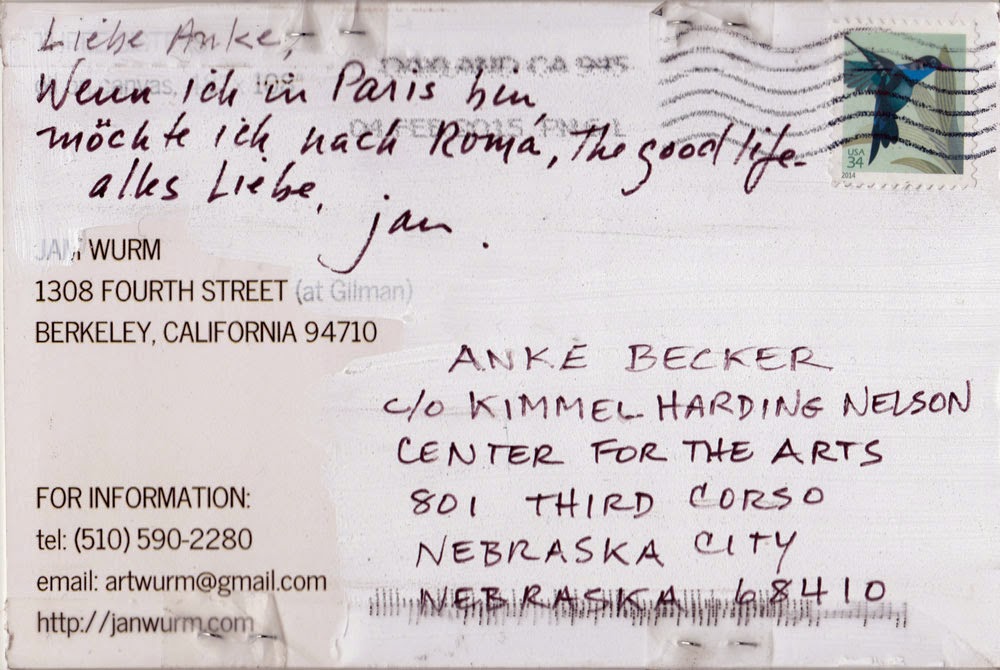 Liebe Anke,
Wenn ich in Paris bin
möchte ich nach Roma, The good life-
alles Liebe,
jan.
OAKLAND CA 945
04 FEB 2015 PM 5 L
USA
34
2014
JAN WURM
1308 FOURTH STREET (at Gilman)
BERKELEY, CALIFORNIA 94710
ANKE BECKER
c/o KIMMEL HARDING NELSON
CENTER FOR THE ARTS
801 THIRD CORSO
NEBRASKA CITY
NEBRASKA 68410
FOR INFORMATION:
tel: (510) 590-2280
email: artwurm@gmail.com
http://janwurm.com